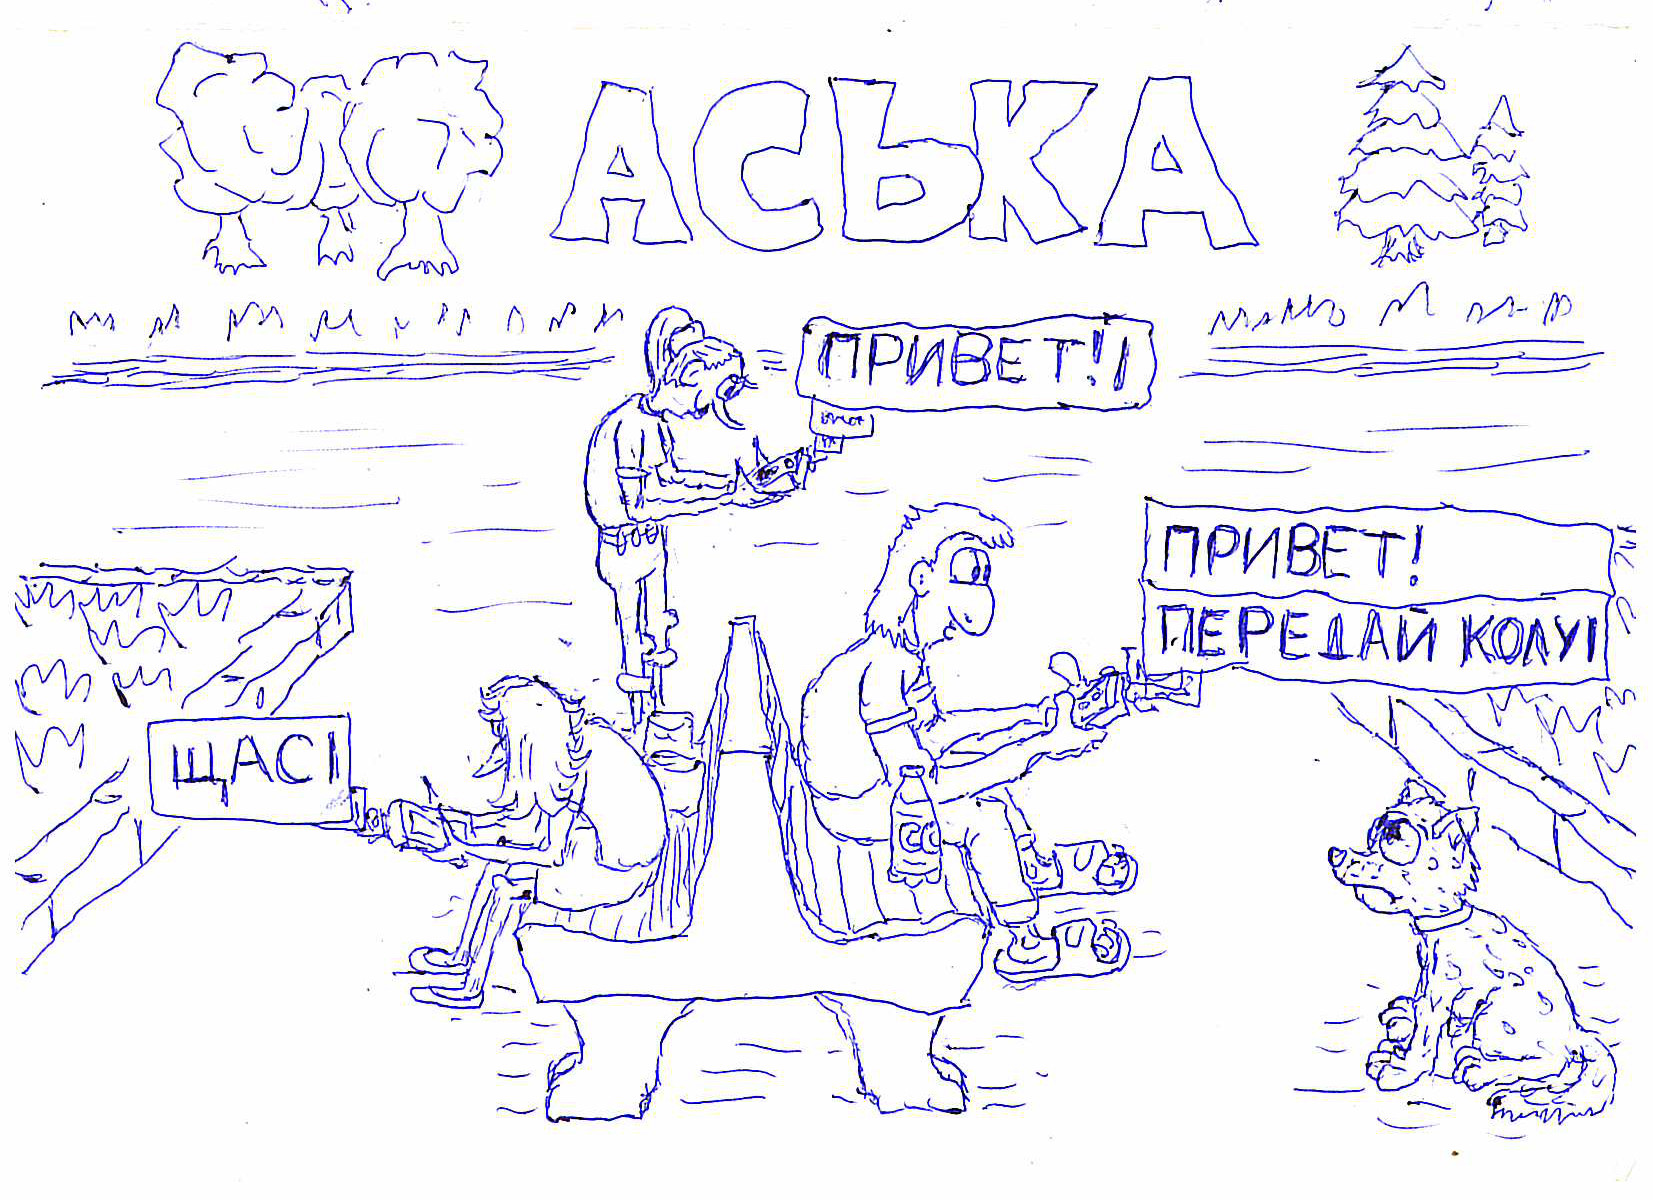 АСЬКА
ПРИВЕТ!!
ПРИВЕТ!
ПЕРЕДАЙ КОЛУ!
ЩАС!